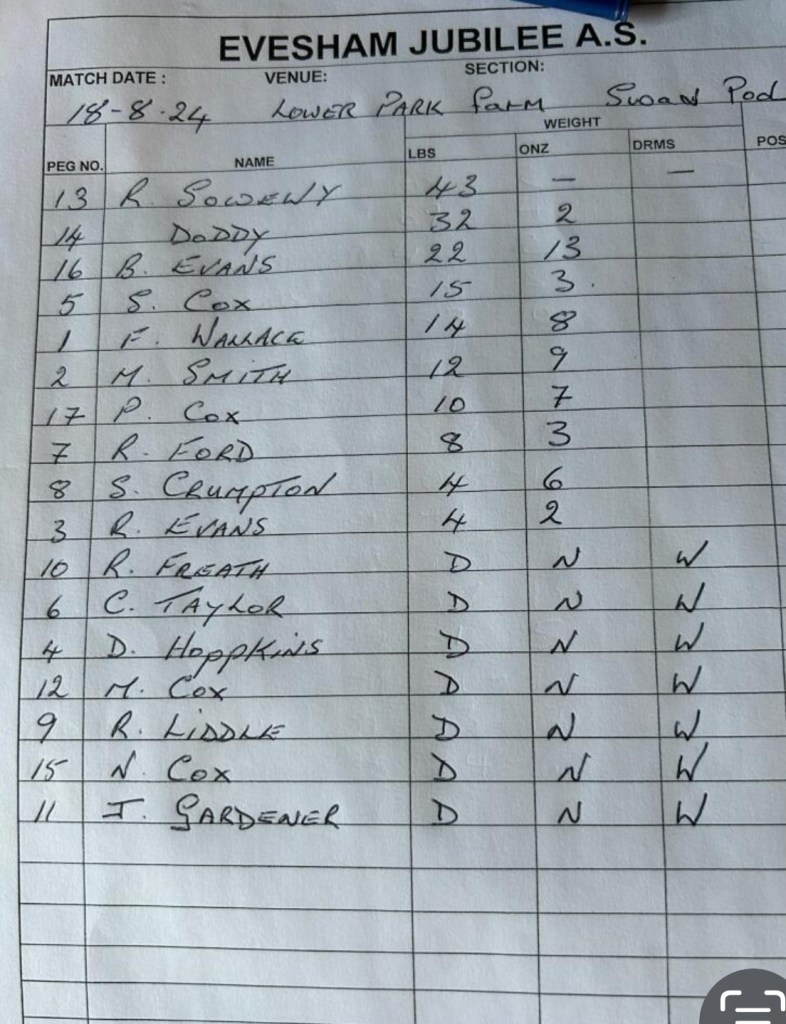 EVESHAM JUBILEE A.S.
MATCH DATE : VENUE: SECTION:
18-8-24 LOWER PARK FARM Swan Pool
WEIGHT
PEG NO. NAME LBS ONZ DRMS POS
13 R. SOWERY 43 — —
14 DODDY 32 2
16 B. EVANS 22 13
5 S. COX 15 3.
1 F. WALLACE 14 8
2 M. SMITH 12 9
17 P. COX 10 7
7 R. FORD 8 3
8 S. CRUMPTON 4 6
3 R. EVANS 4 2
10 R. FREATH D N W
6 C. TAYLOR D N W
4 D. HOPPKINS D N W
12 M. COX D N W
9 R. LIDDLE D N W
15 N. COX D N W
11 J. GARDENER D N W